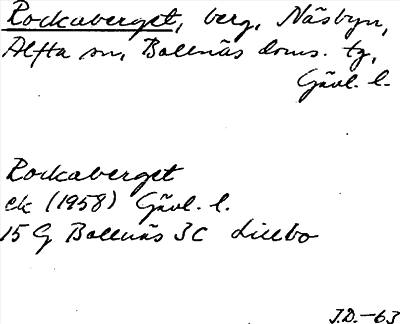 Rockaberget, berg, Näsbyn,
Alfta sn, Bollnäs doms. tg,
Gävl. l.
Rockaberget
ek (1958) Gävl. l.
15 G Bollnäs 3C Lillbo
J.D.-63